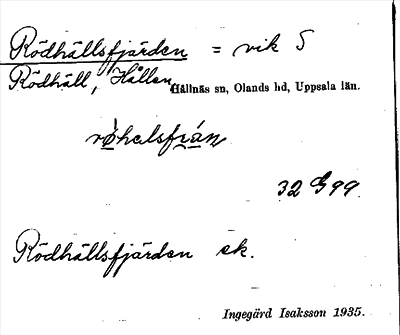 Rödhällsfjärden = vik S
Rödhäll, Hållen,
Hållnäs sn, Olands hd, Uppsala län.
røhelsfrán
32 G 99.
Rödhällsfjärden ek.
Ingegärd Isaksson 1935.